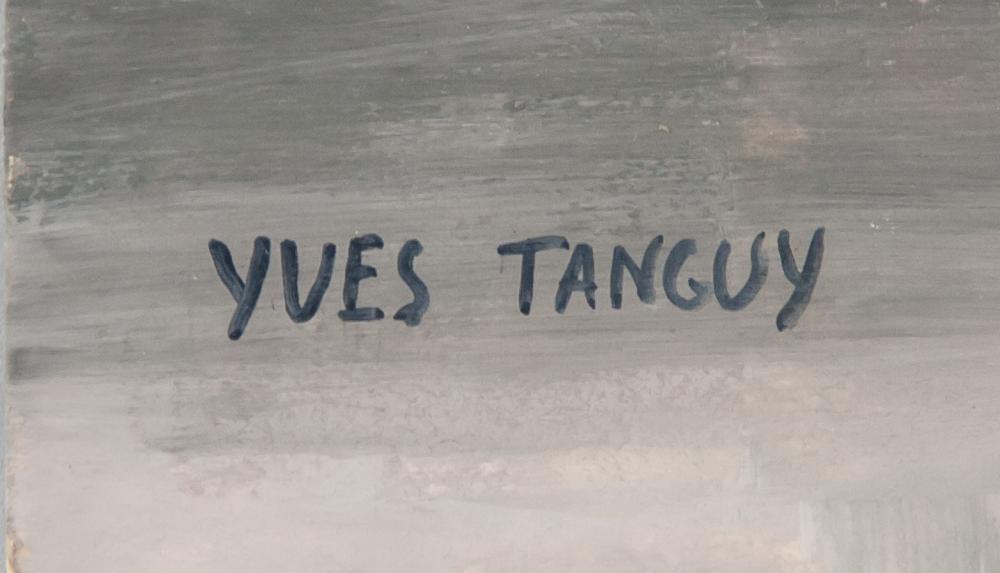 YVES TANGUY